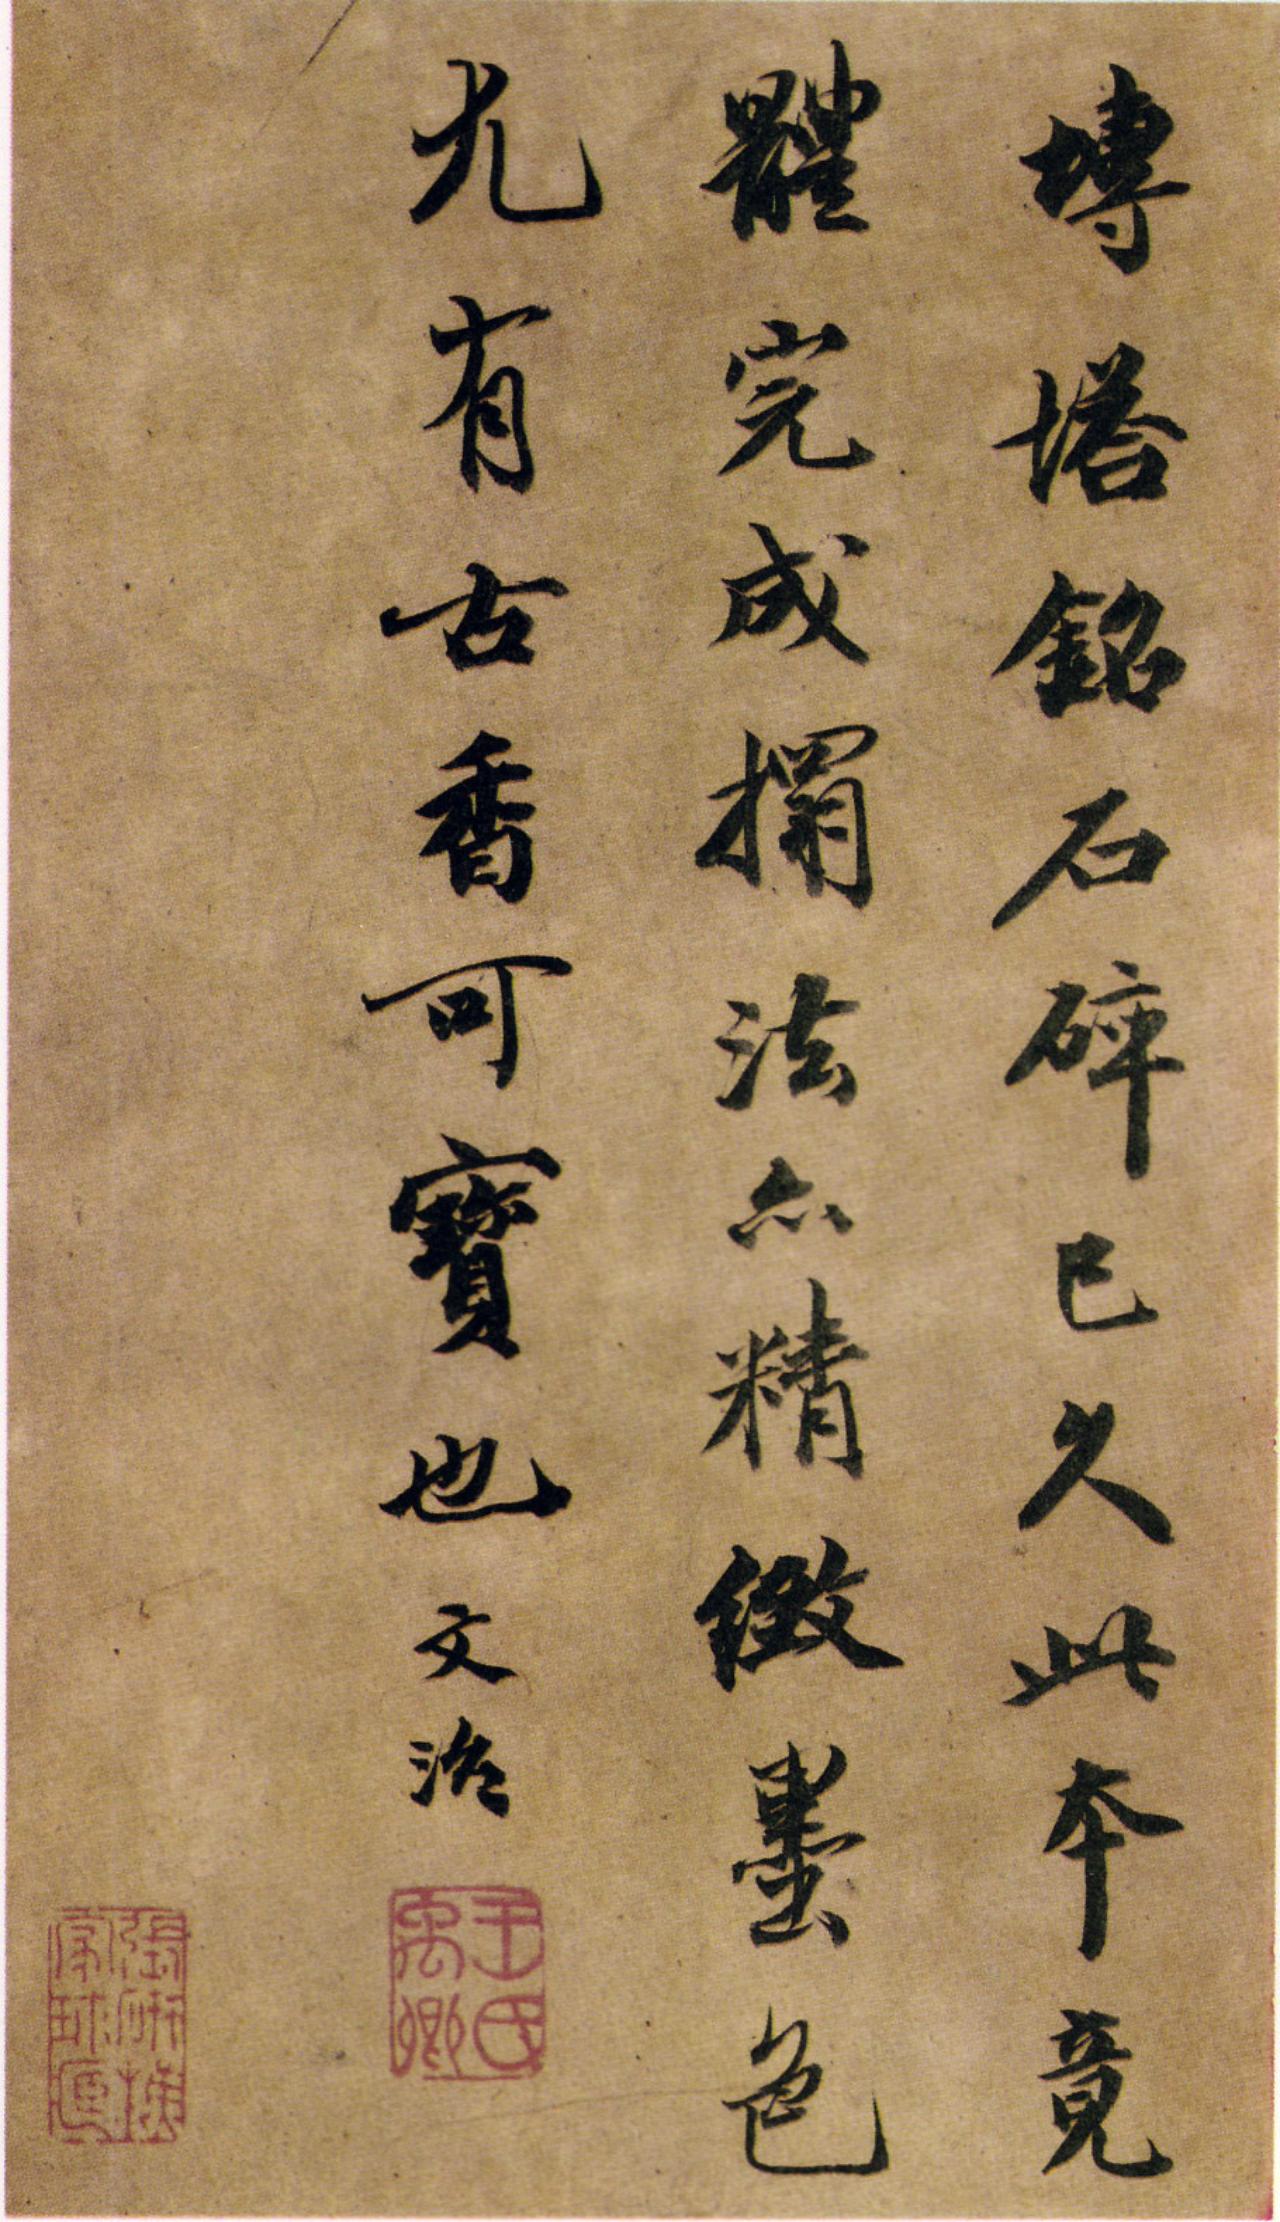 塼塔銘石碎已久此本竟
體完成搨法亦精緻墨色
尤有古香可寶也文治
王氏禹卿